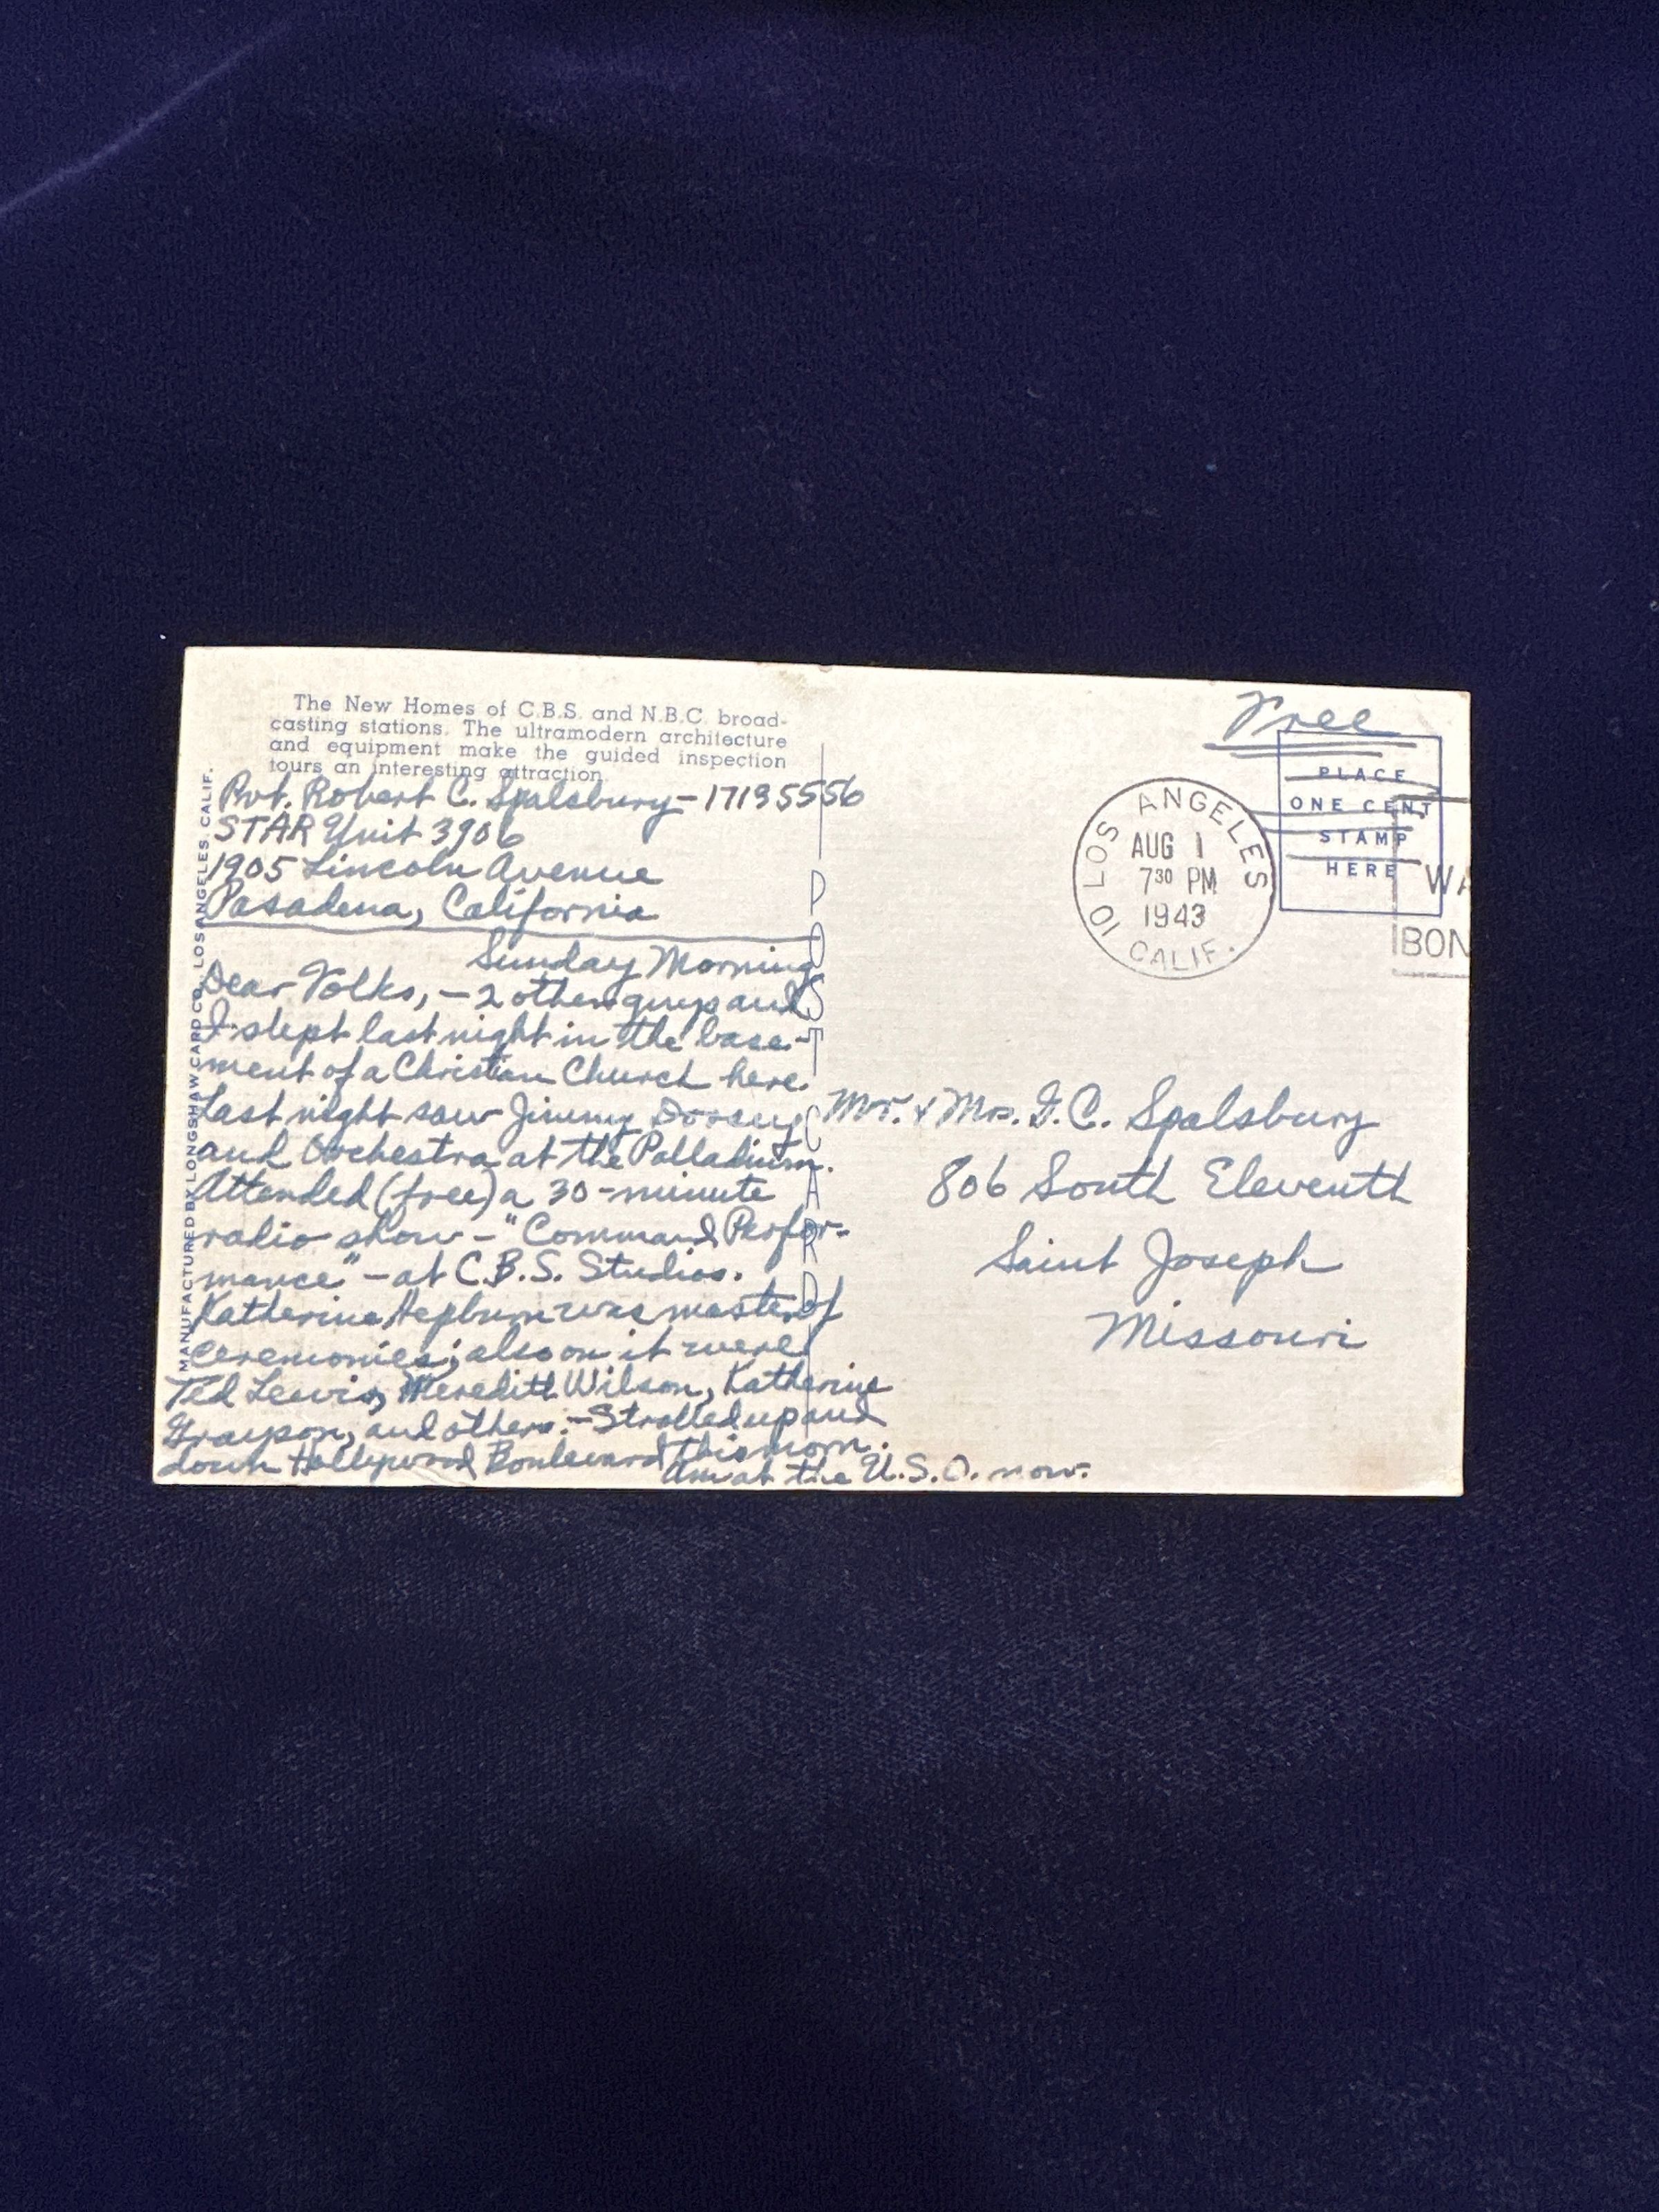 The New Homes of C.B.S. and N.B.C. broad-
casting stations. The ultramodern architecture
and equipment make the guided inspection
tours an interesting attraction.
Pvt. Robert C. Spalsbury - 17195556
STAR Unit 3906
1905 Lincoln Avenue
Pasadena, California
Sunday Morning
Dear Folks, - 2 other guys and
I slept last night in the base-
ment of a Christian Church here.
Last night saw Jimmy Dorsey
and Orchestra at the Palladium.
Attended (free) a 30-minute
radio show - "Command Perfor-
mance" - at C.B.S. Studios.
Katherine Hepburn was master of
ceremonies; also on it were
Ted Lewis, Meredith Wilson, Katherine
Grayson, and others. - Strolled up and
down Hollywood Boulevard this morn.
Am at the U.S.O. now.
MANUFACTURED BY LONGSHAW CARD CO., LOS ANGELES, CALIF.
POST CARD
Free
PLACE
ONE CENT
STAMP
HERE
LOS ANGELES 10
AUG 1
7 30 PM
1943
CALIF.
WA
BON
Mr. & Mrs. F. C. Spalsbury
806 South Eleventh
Saint Joseph
Missouri